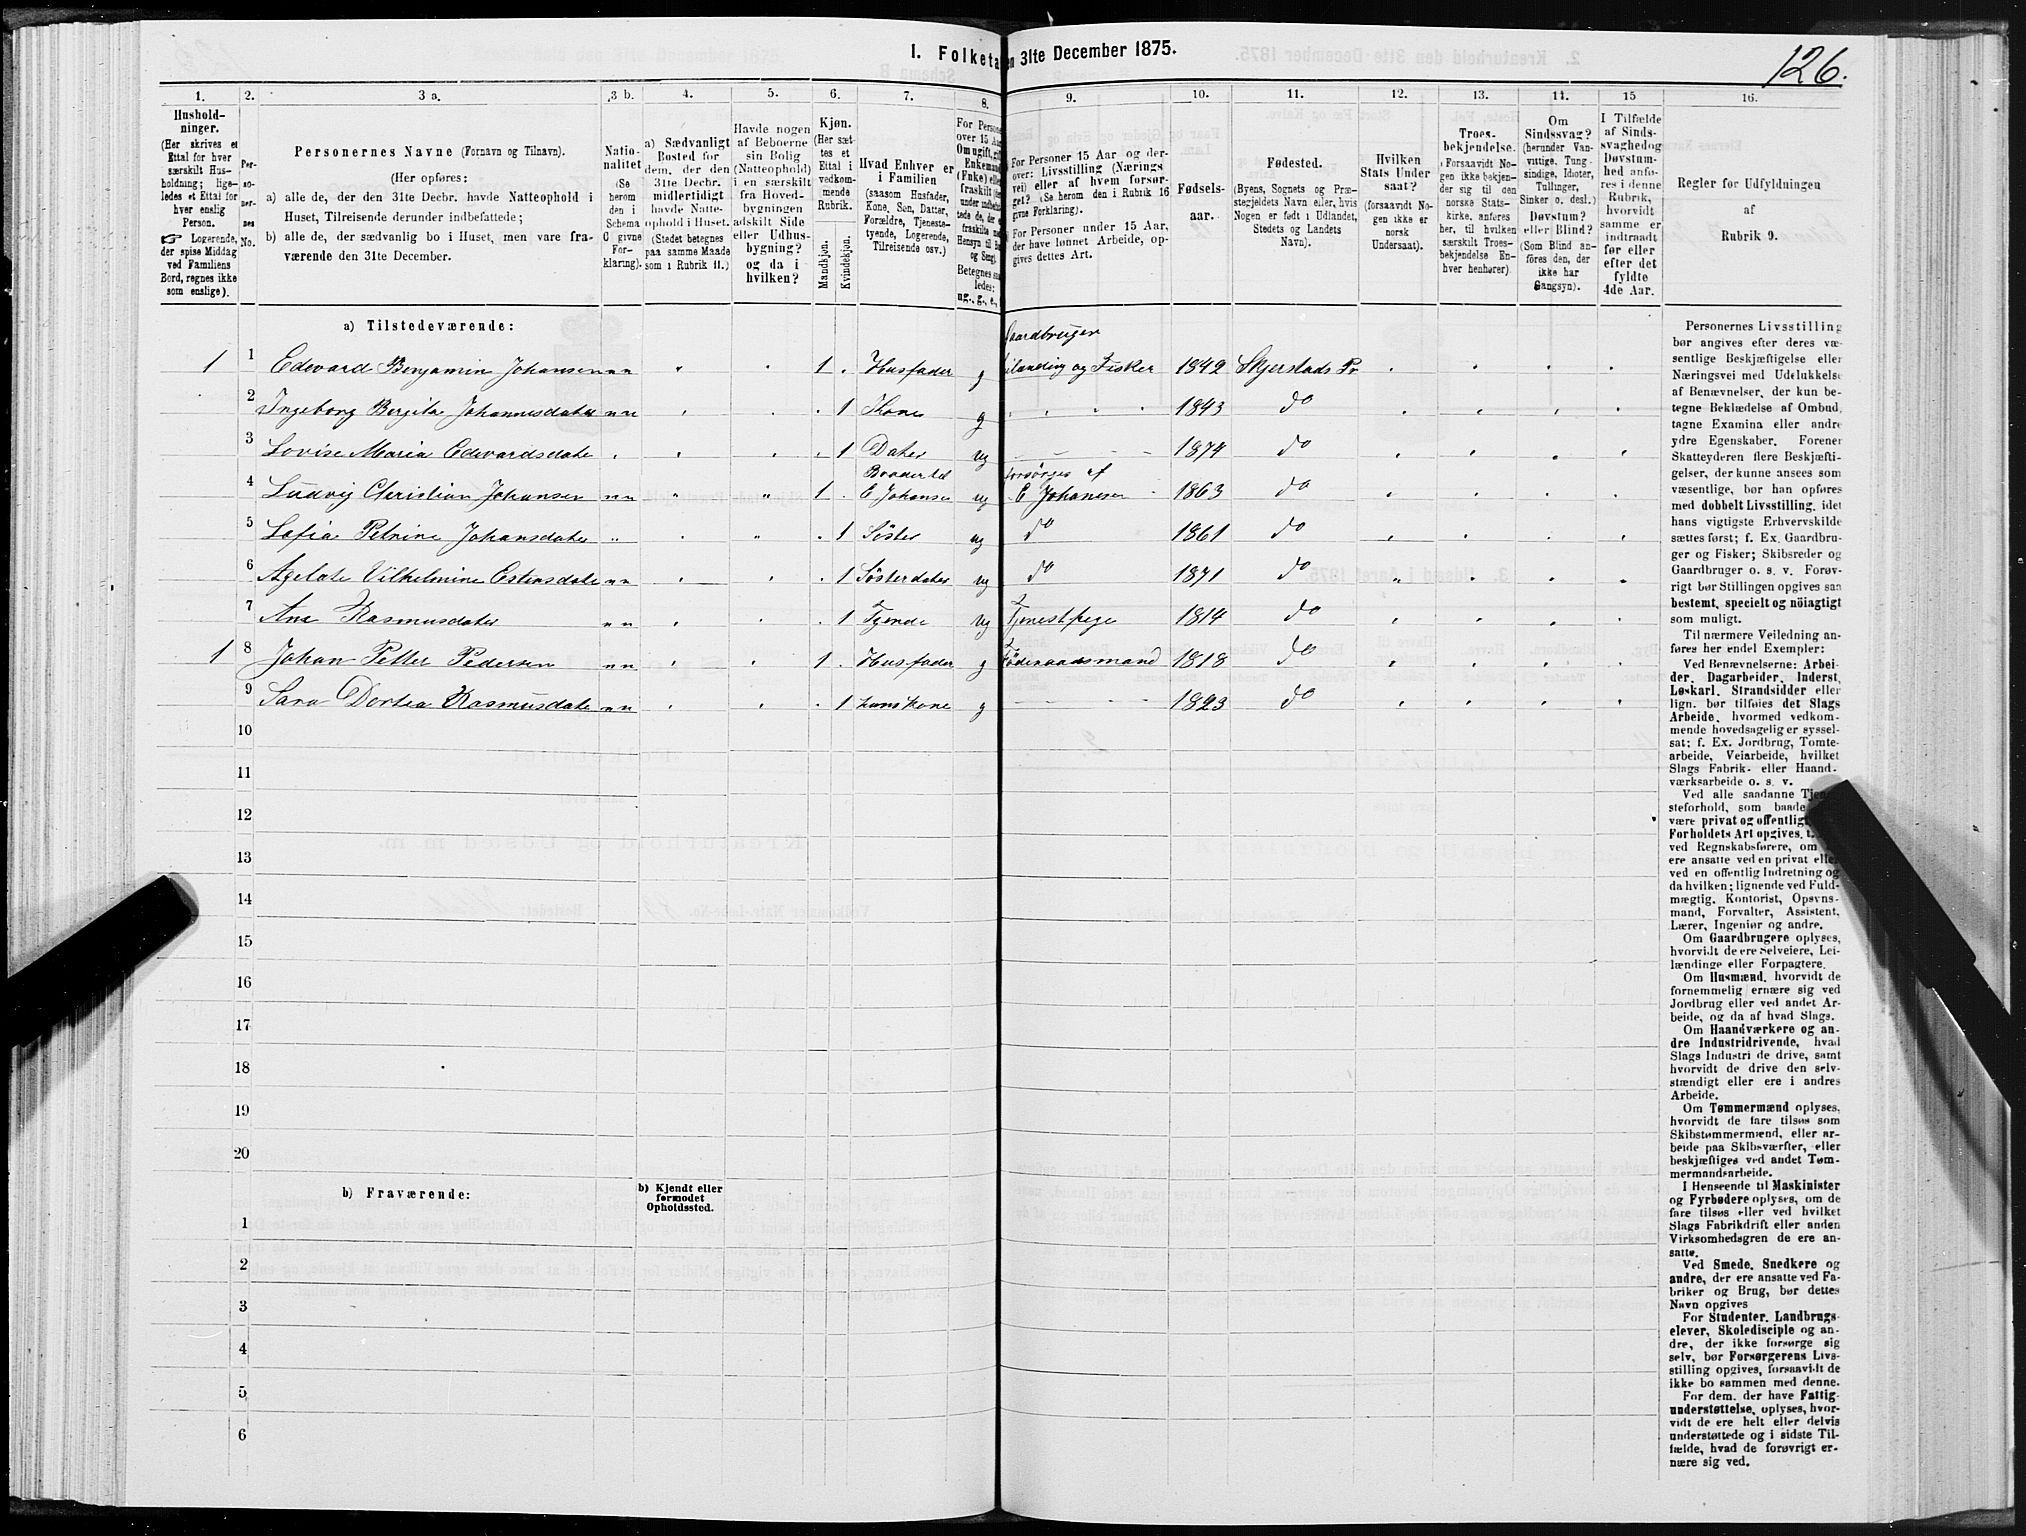 126.
I. Folketa
n 31te December 1875.
1. 2. 3 a. 3 b. 4. 5. 6. 7. 8. 9. 10. 11. 12. 13. 14. 15 16.
Hushold-
ninger.
(Her skrives et
Ettal for hver
særskilt Hus-
holdning; lige-
ledes et Ettal for
hver enslig
Person.
☞ Logerende,
der spise Middag
ved Familiens
Bord, regnes ikke
som enslige).
Per-
so-
ner-
nes
No.
Personernes Navne (Fornavn og Tilnavn).
(Her opføres:
a) alle de, der den 31te Decbr. havde Natteophold i
Huset, Tilreisende derunder indbefattede;
b) alle de, der sædvanlig bo i Huset, men vare fra-
værende den 31te December.
Natio-
nalitet
(Se
herom
den i
Schema
G givne
For-
klaring).
a) Sædvanligt
Bosted for
dem, der den
31te Decbr.
midlertidigt
havde Natte-
ophold i Huset.
(Stedet betegnes
paa samme Maade
som i Rubrik 11.)
Havde nogen
af Beboerne
sin Bolig
(Natteophold)
i en særskilt
fra Hoved-
bygningen
adskilt Side
eller Udhus-
bygning?
og da i
hvilken?
Kjøn.
(Her sæt-
tes et
Ettal i
vedkom-
mende
Rubrik.
Mandskjøn.
Kvindekjøn.
Hvad Enhver er
i Familien
(saasom Husfader,
Kone, Søn, Datter,
Forældre, Tjeneste-
tyende, Logerende,
Tilreisende osv.)
For Persone
over 15 Aa
Om ugift, gif
Enkemand
(Enke) elle
fraskilt
under indbefat-
tede de, der e
fraskilte
Hensyn til b
og Seng).
Betegnes saa
ledes:
ug., g., e.,
For Personer 15 Aar og der-
over: Livsstilling (Nærings
vei) eller af hvem forsør-
get? (Se herom den i Rubrik 16
givne Forklaring).
For Personer under 15 Aar,
der have lønnet Arbeide, op-
gives dettes Art.
Fødsels-
aar.
Fødested.
(Byens, Sognets og Præ-
stegjeldets Navn eller, hvis
Nogen er født i Udlandet,
Stedets og Landets
Navn).
Hvilken
Stats Under
saat?
(forsaavidt No-
gen ikke er
norsk
Undersaat).
Troes-
bekjendelse.
(Forsaavidt No-
gen ikke bekjen-
der sig til den
norske Stats-
kirke, anføres
her, til hvilken
særskilt Troes-
bekjendelse En-
hver henhører).
Om
Sindssvag?
(herunder Van-
vittige, Tung-
sindige, Idioter,
Tullinger,
Sinker o. desl.)
Døvstum?
eller Blind?
(Som Blind an-
føres den, der
ikke har
Gangsyn).
I Tilfælde
af Sinds-
svaghed og
Døvstum-
hed anfø-
res i denne
Rubrik,
hvorvidt
samme er
indtraadt
før eller
efter det
fyldte
4de Aar.
Regler for Udfyldningen
af
Rubrik 9.
a) Tilstedeværende:
Gaardbruger
1 1 Edevard Benjamin Johansen nn 1 Husfader g ilænding og Fisker 1842 Skjerstads Pr
2 Ingeborg Bergita Johannesdater nn 1 Kone g 1843 do
3 Lovise Maria Edevardsdate 1 Dater ug 1874 do
Broder til forsørges af
4 Ludvig Christian Johansen nn 1 E Johanse ug E Johansen 1863 do
5 Sofia Petrine Johansdater 1 Søster ug do 1861 do
6 Agelate Vilhelmine Estensdate nn 1 Søsterdater ug do 1871 do
7 Ane Rasmusdater nn 1 Tjende ug Tjenestpige 1814 do
1 8 Johan Petter Pedersen nn 1 Husfader g Föderaadsmand 1818 do
9 Sara Dortea Rasmusdate nn 1 hans Kone g 1823 do
10
11
12
13
14
15
16
17
18
19
20
b) Fraværende:
b) Kjendt eller
formodet
Opholdssted.
1
2
3
4
5
6
Personernes Livsstilling
bør angives efter deres væ-
sentlige Beskjæftigelse eller
Næringsvei med Udelukkelse
af Benævnelser, der kun be-
tegne Beklædelse af Ombud,
tagne Examina eller andre
ydre Egenskaber. Forener
Skatteyderen flere Beskjæfti-
gelser, der kunne ansees som
væsentlige, bør han opføres
med dobbelt Livsstilling, idet
hans vigtigste Erhvervskilde
sættes først; f. Ex. Gaardbru-
ger og Fisker; Skibsreder og
Gaardbruger o. s. v. Forøv-
rigt bør Stillingen opgives saa
bestemt, specielt og nöiagtigt
som muligt.
Til nærmere Veiledning an-
føres her endel Exempler:
Ved Benævnelserne: Arbei-
der, Dagarbeider, Inderst,
Løskarl, Strandsidder eller
lign. bør tilføies det Slags
Arbeide, hvormed vedkom-
mende hovedsagelig er syssel-
sat; f. Ex. Jordbrug, Tomte-
arbeide, Veiarbeide, hvilket
Slags Fabrik- eller Haand-
værksarbeide o. s. v.
Ved alle saadanne Tjen
steforhold, som baade
være privat og offentligt
Forholdets Art opgives, t.
ved Regnskabsførere, om
ere ansatte ved en privat elle
ved en offentlig Indretning og
da hvilken; lignende ved Fuld-
mægtig, Kontorist, Opsyns-
mand, Forvalter, Assistent,
Lærer, Ingeniør og andre.
Om Gaardbrugere oplyses,
hvorvidt de ere Selveiere, Lei-
lændinge eller Forpagtere.
Om Husmænd, hvorvidt de
fornemmelig ernære sig ved
Jordbrug eller ved andet Ar-
beide, og da af hvad Slags.
Om Haandværkere og an-
dre Industridrivende, hvad
Slags Industri de drive, samt
hvorvidt de drive den selv-
stændigt eller ere i andres
Arbeide.
Om Tømmermænd oplyses,
hvorvidt de fare tilsøs som
Skibstømmermænd, eller ar-
beide paa Skibsværfter, eller
beskjæftiges ved andet Tøm-
mermandsarbeide.
I Henseende til Maskinister
og Fyrbødere oplyses, om de
fare tilsøs eller ved hvilket
Slags Fabrikdrift eller anden
Virksomhedsgren de ere an-
satte.
Ved Smede, Snedkere og
andre, der ere ansatte ved Fa-
briker og Brug, bør dettes
Navn opgives
For Studenter, Landbrugs-
elever, Skoledisciple og an-
dre, der ikke forsørge sig
selv, bør Forsørgerens Livs-
stilling opgives, forsaavidt de
ikke bo sammen med denne.
For dem, der have Fattig-
understøttelse, oplyses, hvor-
vidt de ere helt eller delvis
understøttede og i sidste Til-
fælde, hvad de forøvrigt er-
nære sig ved.